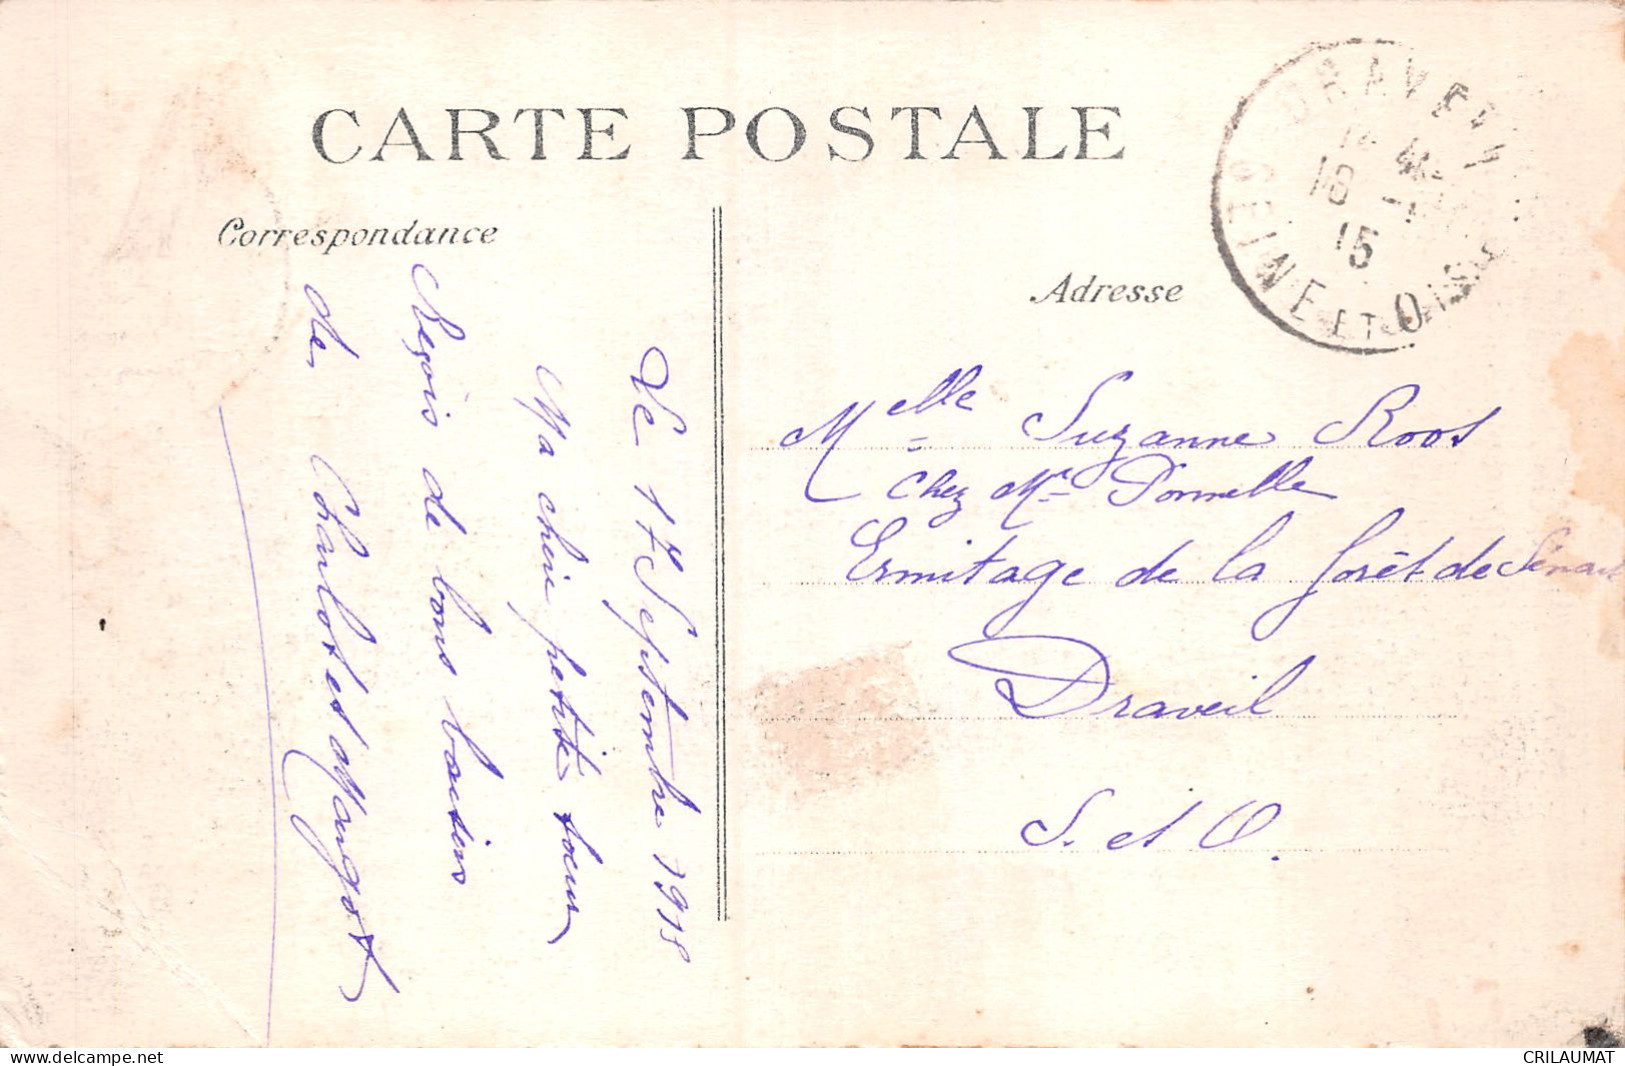 CARTE POSTALE
Correspondance
Adresse
DRAVEIL
18
15
SEINE ET OISE
Le 17 Septembre 1915
Ma chère petite sœur
Reçois de bons baisers
de Charlot et Margot
Melle Suzanne Roos
Chez Mr
Ermitage de la forêt de Sénart
Draveil
S. et O.
www.delcampe.net
CRILAUMAT